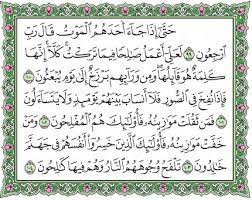 حَتَّىٰ إِذَا جَاءَ أَحَدَهُمُ الْمَوْتُ قَالَ رَبِّ
ارْجِعُونِ ٩٩ لَعَلِّي أَعْمَلُ صَالِحًا فِيمَا تَرَكْتُ كَلَّا إِنَّهَا
كَلِمَةٌ هُوَ قَائِلُهَا وَمِن وَرَائِهِم بَرْزَخٌ إِلَىٰ يَوْمِ يُبْعَثُونَ ١٠٠
فَإِذَا نُفِخَ فِي الصُّورِ فَلَا أَنسَابَ بَيْنَهُمْ يَوْمَئِذٍ وَلَا يَتَسَاءَلُونَ
١٠١ فَمَن ثَقُلَتْ مَوَازِينُهُ فَأُولَٰئِكَ هُمُ الْمُفْلِحُونَ ١٠٢ وَمَنْ
خَفَّتْ مَوَازِينُهُ فَأُولَٰئِكَ الَّذِينَ خَسِرُوا أَنفُسَهُمْ فِي جَهَنَّمَ
خَالِدُونَ ١٠٣ تَلْفَحُ وُجُوهَهُمُ النَّارُ وَهُمْ فِيهَا كَالِحُونَ ١٠٤